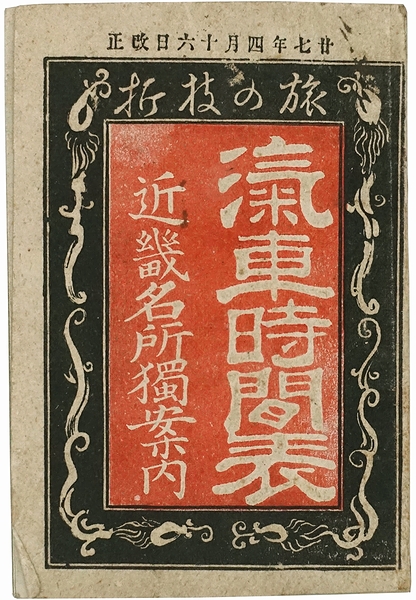 廿七年四月十六日改正
旅の枝折
滊車時間表
近畿名所獨案内